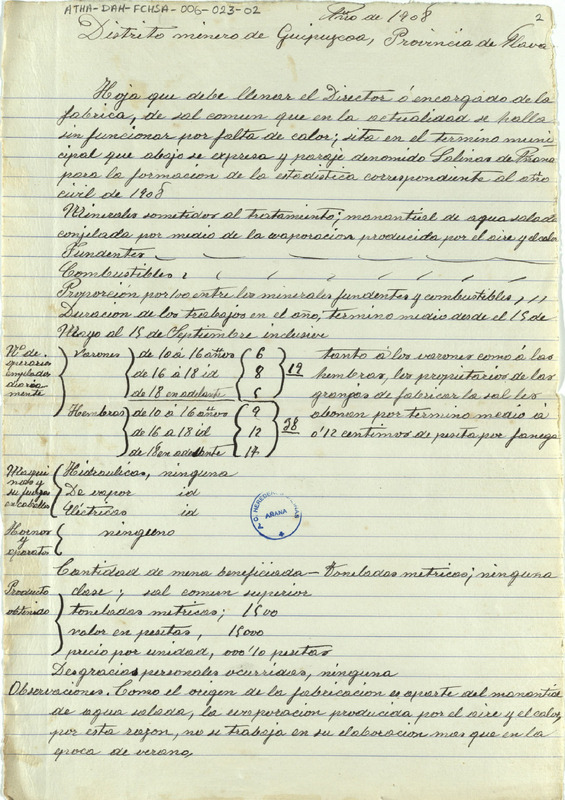 ATHA-DAH-FCHSA-006-023-02
Año de 1908
2
Distrito minero de Guipuzcoa, Provincia de Alava
Hoja que debe llenar el Director ó encargado de la
fabrica, de sal comun que en la actualidad se halla
sin funcionar por falta de calor; sita en el termino muni
cipal que abajo se expresa y paraje denomido Salinas de Añana
para la formacion de la estadistica correspondiente al año
civil de 1908
Minerales sometidos al tratamiento; manantial de agua salada
conjilada por medio de la evaporacion producida por el aire y el calor
Fundentes
Combustibles :
Proporción por 100 entre los minerales fundentes y combustibles, , ,
Duracion de los trabajos en el año, termino medio desde el 15 de
Mayo al 15 de Septiembre inclusive
Nº de operarios empleados diariamente
Varones
de 10 á 16 años 6
de 16 á 18 id 8
de 18 en adelante 5
19
Hembras
de 10 á 16 años 9
de 16 a 18 id 12
de 18 en adelante 17
38
tanto á los varones como á las
hembras, los propietarios de las
granjas de fabricar la sal les
abonan por termino medio á
0'12 centimos de peseta por fanega
Maqui
nas y
su fuerza
en caballos
Hidraulicas, ninguna
De vapor id
Eléctricas id
Hornos
y
aparatos
ninguno
Cantidad de mena beneficiada - Toneladas metricas; ninguna
Producto
obtenido
clase ; sal comun superior
toneladas metricas; 1500
valor en pesetas, 15000
precio por unidad, 000'10 pesetas
Desgracias personales ocurridas, ninguna
Observaciones. Como el origen de la fabricacion es aparte del manantial
de agua salada, la evaporacion producida por el aire y el calor,
por esta razon, no se trabaja en su elaboracion mas que en la
epoca de verano,
ARANA